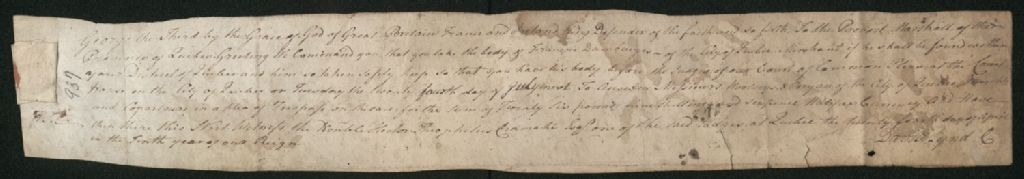 George the Third by the Grace of God of Great Britain France and Ireland King Defender of the faith and so forth To the Provost Marshall of the
Province of Quebec Greeting We Command you that you take the body of Francis of the City of Quebec Merchant if he shall be found within
your District of Quebec and him so taken safely keep so that you have his body before the Judges of our Court of Common Pleas at the Court
House in the City of Quebec on Tuesday the twenty fourth day of July next To Answer of the City of Quebec
and in a Plea of Trespass on the case for the sum of Twenty Six pounds and Currency and Have
then there this Writ Witness the Honble Hector Theophilus Cramahe Esqr one of the said Judges at Quebec the twenty fourth day of April
in the Sixth year of our Reign
David Lynd C
939